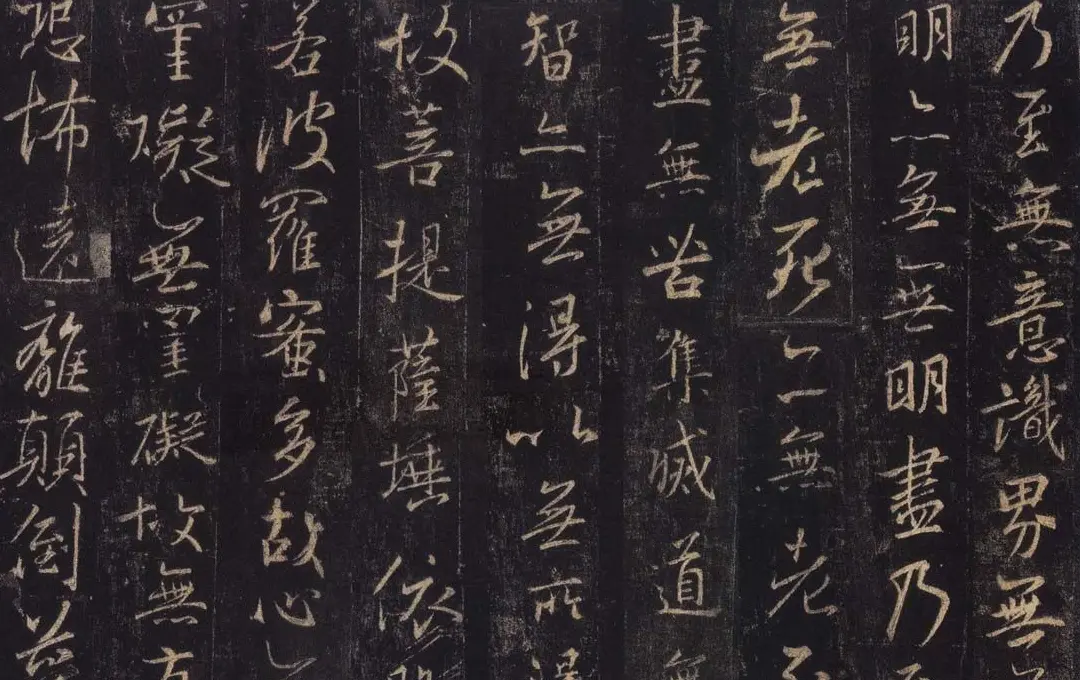 乃至無意識界無
明亦無無明盡乃至
無老死亦無老死
盡無苦集滅道無
智亦無得以無所得
故菩提薩埵依般
若波羅蜜多故心
罣礙無罣礙故無有
恐怖遠離顛倒夢